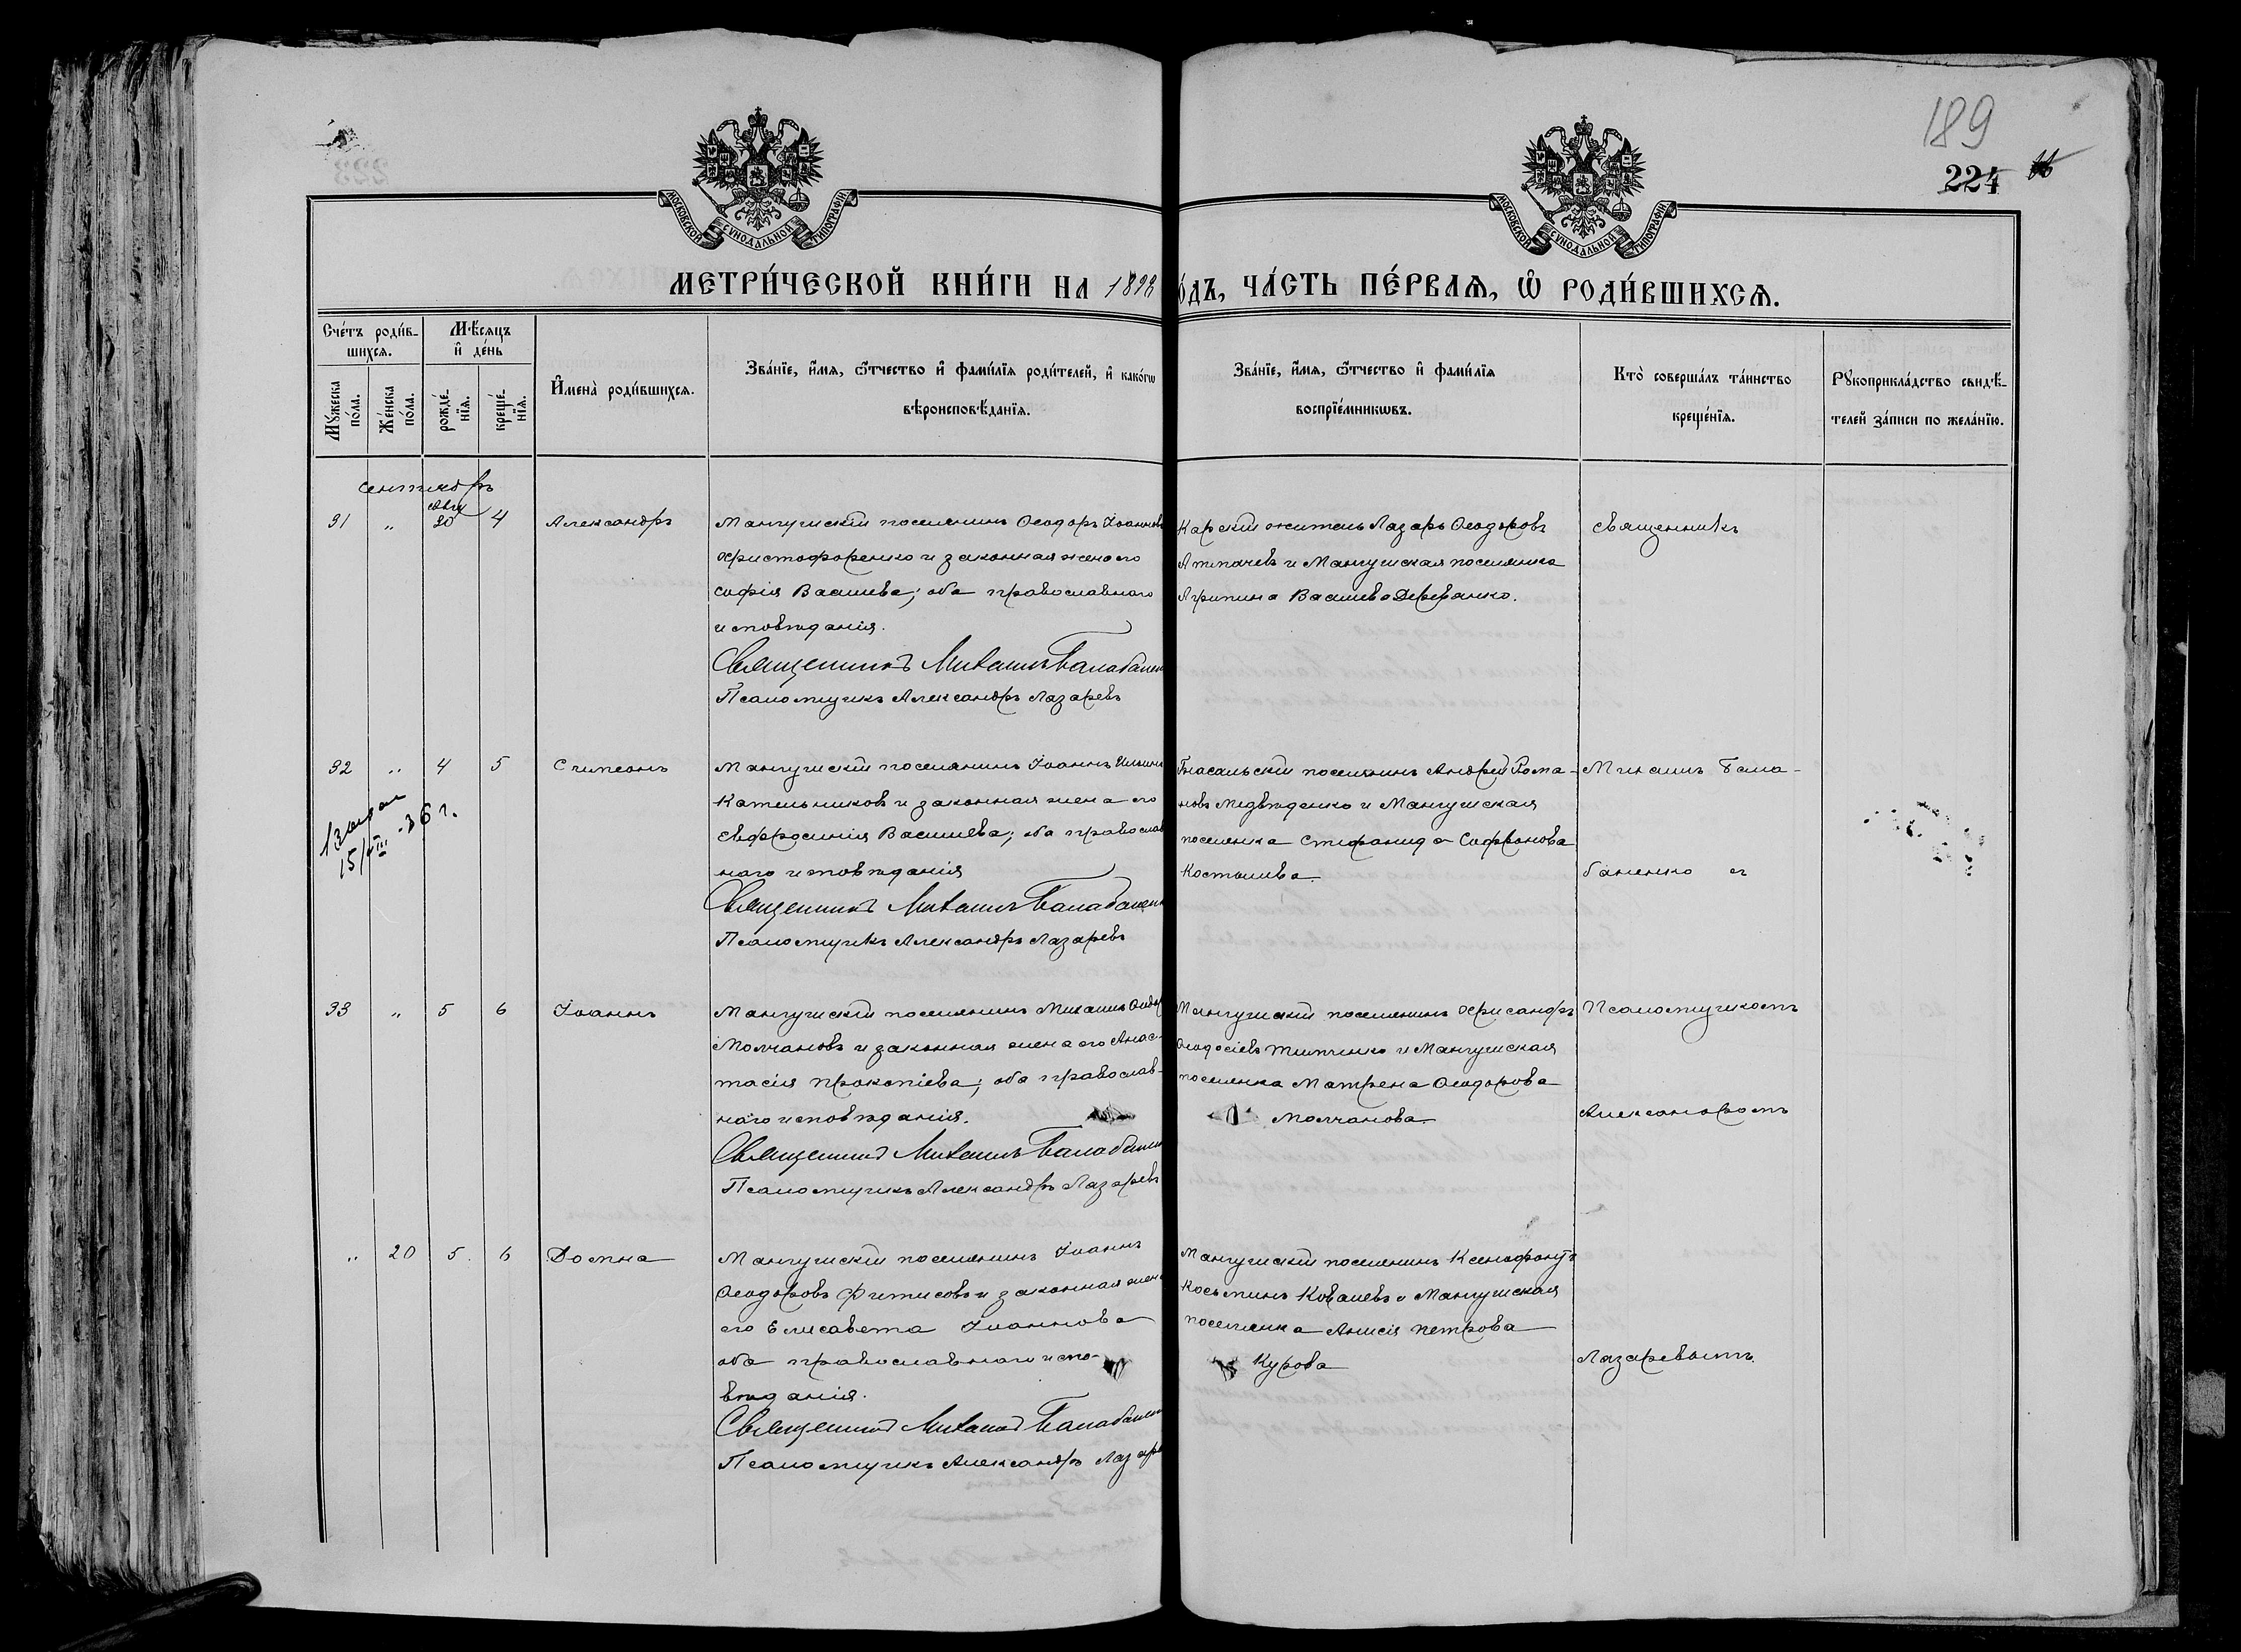 189
224
МОСКОВСКОЙ СУНОДАЛЬНОЙ ТИПОГРАФІИ
МОСКОВСКОЙ СУНОДАЛЬНОЙ ТИПОГРАФІИ
МЕТРИ́ЧЕСКОЙ КНИ́ГИ НА 1898
О́ДЪ, ЧА́СТЬ ПЕ́РВАѦ, Ѡ҆ РОДИ́ВШИХСѦ.
Сче́тъ роди́в-
шихсѧ.
Мѣ́сѧцъ
и҆ де́нь
Мꙋ́жеска
по́ла.
Же́нска
по́ла.
рожде́-
нїѧ.
креще́-
нїѧ.
И҆мена̀ роди́вшихсѧ.
Зва́нїе, и҆́мѧ, ѻ҆́тчество и҆ фами́лїѧ роди́телей, и҆ како́гѡ
вѣроисповѣ́данїѧ.
Зва́нїе, и҆́мѧ, ѻ҆́тчество и҆ фами́лїѧ
воспрїе́мникѡвъ.
Кто̀ соверша́лъ та́инство
креще́нїѧ.
Рꙋкоприкла́дство свидѣ́-
телей за́писи по жела́нїю.
Сентябрь
Авг.
31 „ 30 4 Александръ
Мангушскій поселянинъ Ѳеодоръ Іоанновъ
Христофоренко и законная жена его
Софія Васильева; оба православнаго
исповѣданія.
Священникъ Михаилъ Балабанен
Псаломщикъ Александръ Лазаревъ
Карскій житель Лазарь Ѳеодоровъ
и Мангушская поселянка
Агрипина Васильева
Священникъ
32 „ 4 5 Симеонъ
15/VIII-36 г.
Мангушскій поселянинъ Іоаннъ Ильинъ
Котельниковъ и законная жена его
Евфросинія Васильева; оба православ
наго исповѣданія
Священникъ Михаилъ Балабанен
Псаломщикъ Александръ Лазаревъ
поселянинъ Андрей Рома-
новъ Медвѣденко и Мангушская
поселянка Стефанида Софронова
Костылева.
Михаилъ Бала-
баненко и
33 „ 5 6 Іоаннъ
Мангушскій поселянинъ Михаилъ Ѳеодор
Молчановъ и законная жена его Анас-
тасія Прокопіева; оба православ-
наго исповѣданія.
Священникъ Михаилъ Балабанен
Псаломщикъ Александръ Лазаревъ
Мангушскій поселянинъ Хрисанфъ
Ѳеодосіевъ и Мангушская
поселянка Матрена Ѳеодорова
Молчанова.
Псаломщикомъ
Александромъ
„ 20 5 6 Домна
Мангушскій поселянинъ Іоаннъ
Ѳеодоровъ Фетисовъ и законная жена
его Елисавета Іоаннова
оба православнаго испо-
вѣданія.
Священникъ Михаилъ Балабанен
Псаломщикъ Александръ Лазаре
Мангушскій поселянинъ Ксенофонтъ
Косьминъ Ковалевъ и Мангушская
поселянка Анисія Петрова
Курова
Лазаревымъ.